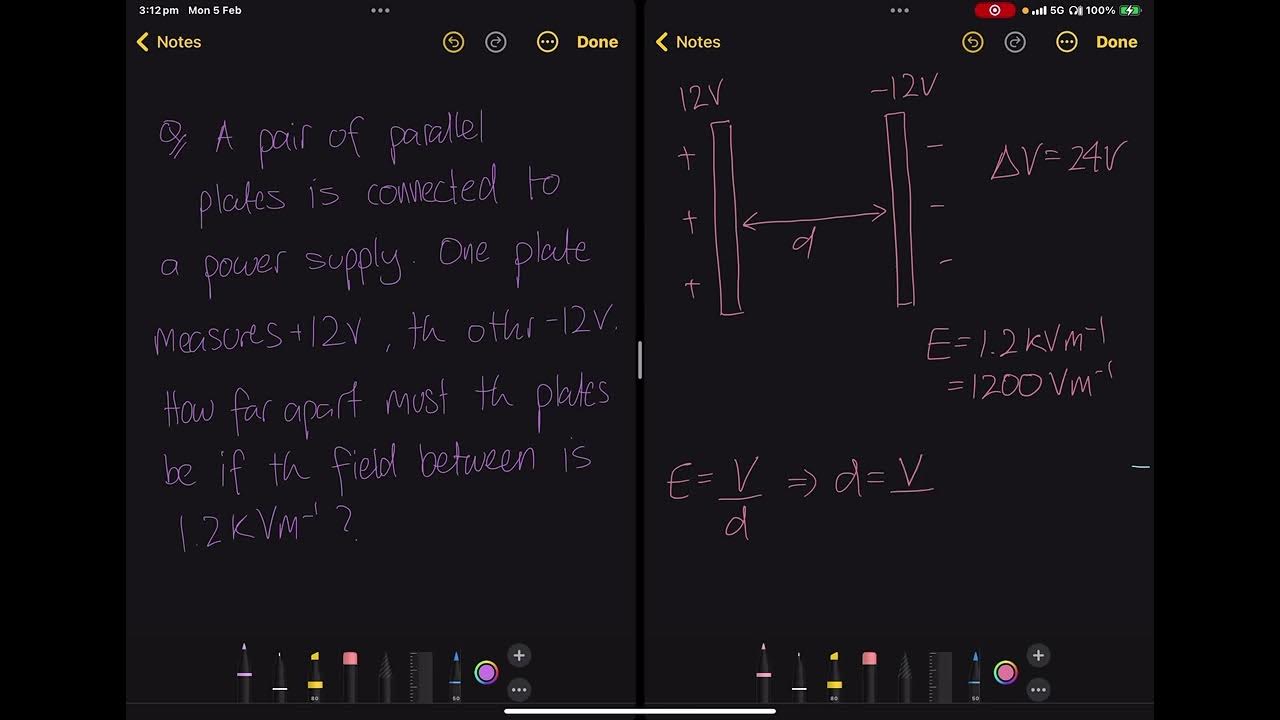 3:12pm Mon 5 Feb
5G 100%
Notes
Done
Notes
Done
Q A pair of parallel
plates is connected to
a power supply. One plate
measures +12V, th othr -12V.
How far apart must th plates
be if th field between is
1.2kVm⁻¹?
12V
-12V
+ -
ΔV=24V
+ -
d
+ -
E=1.2kVm⁻¹
=1200Vm⁻¹
E=V/d ⇒ d=V
80
50
80
50